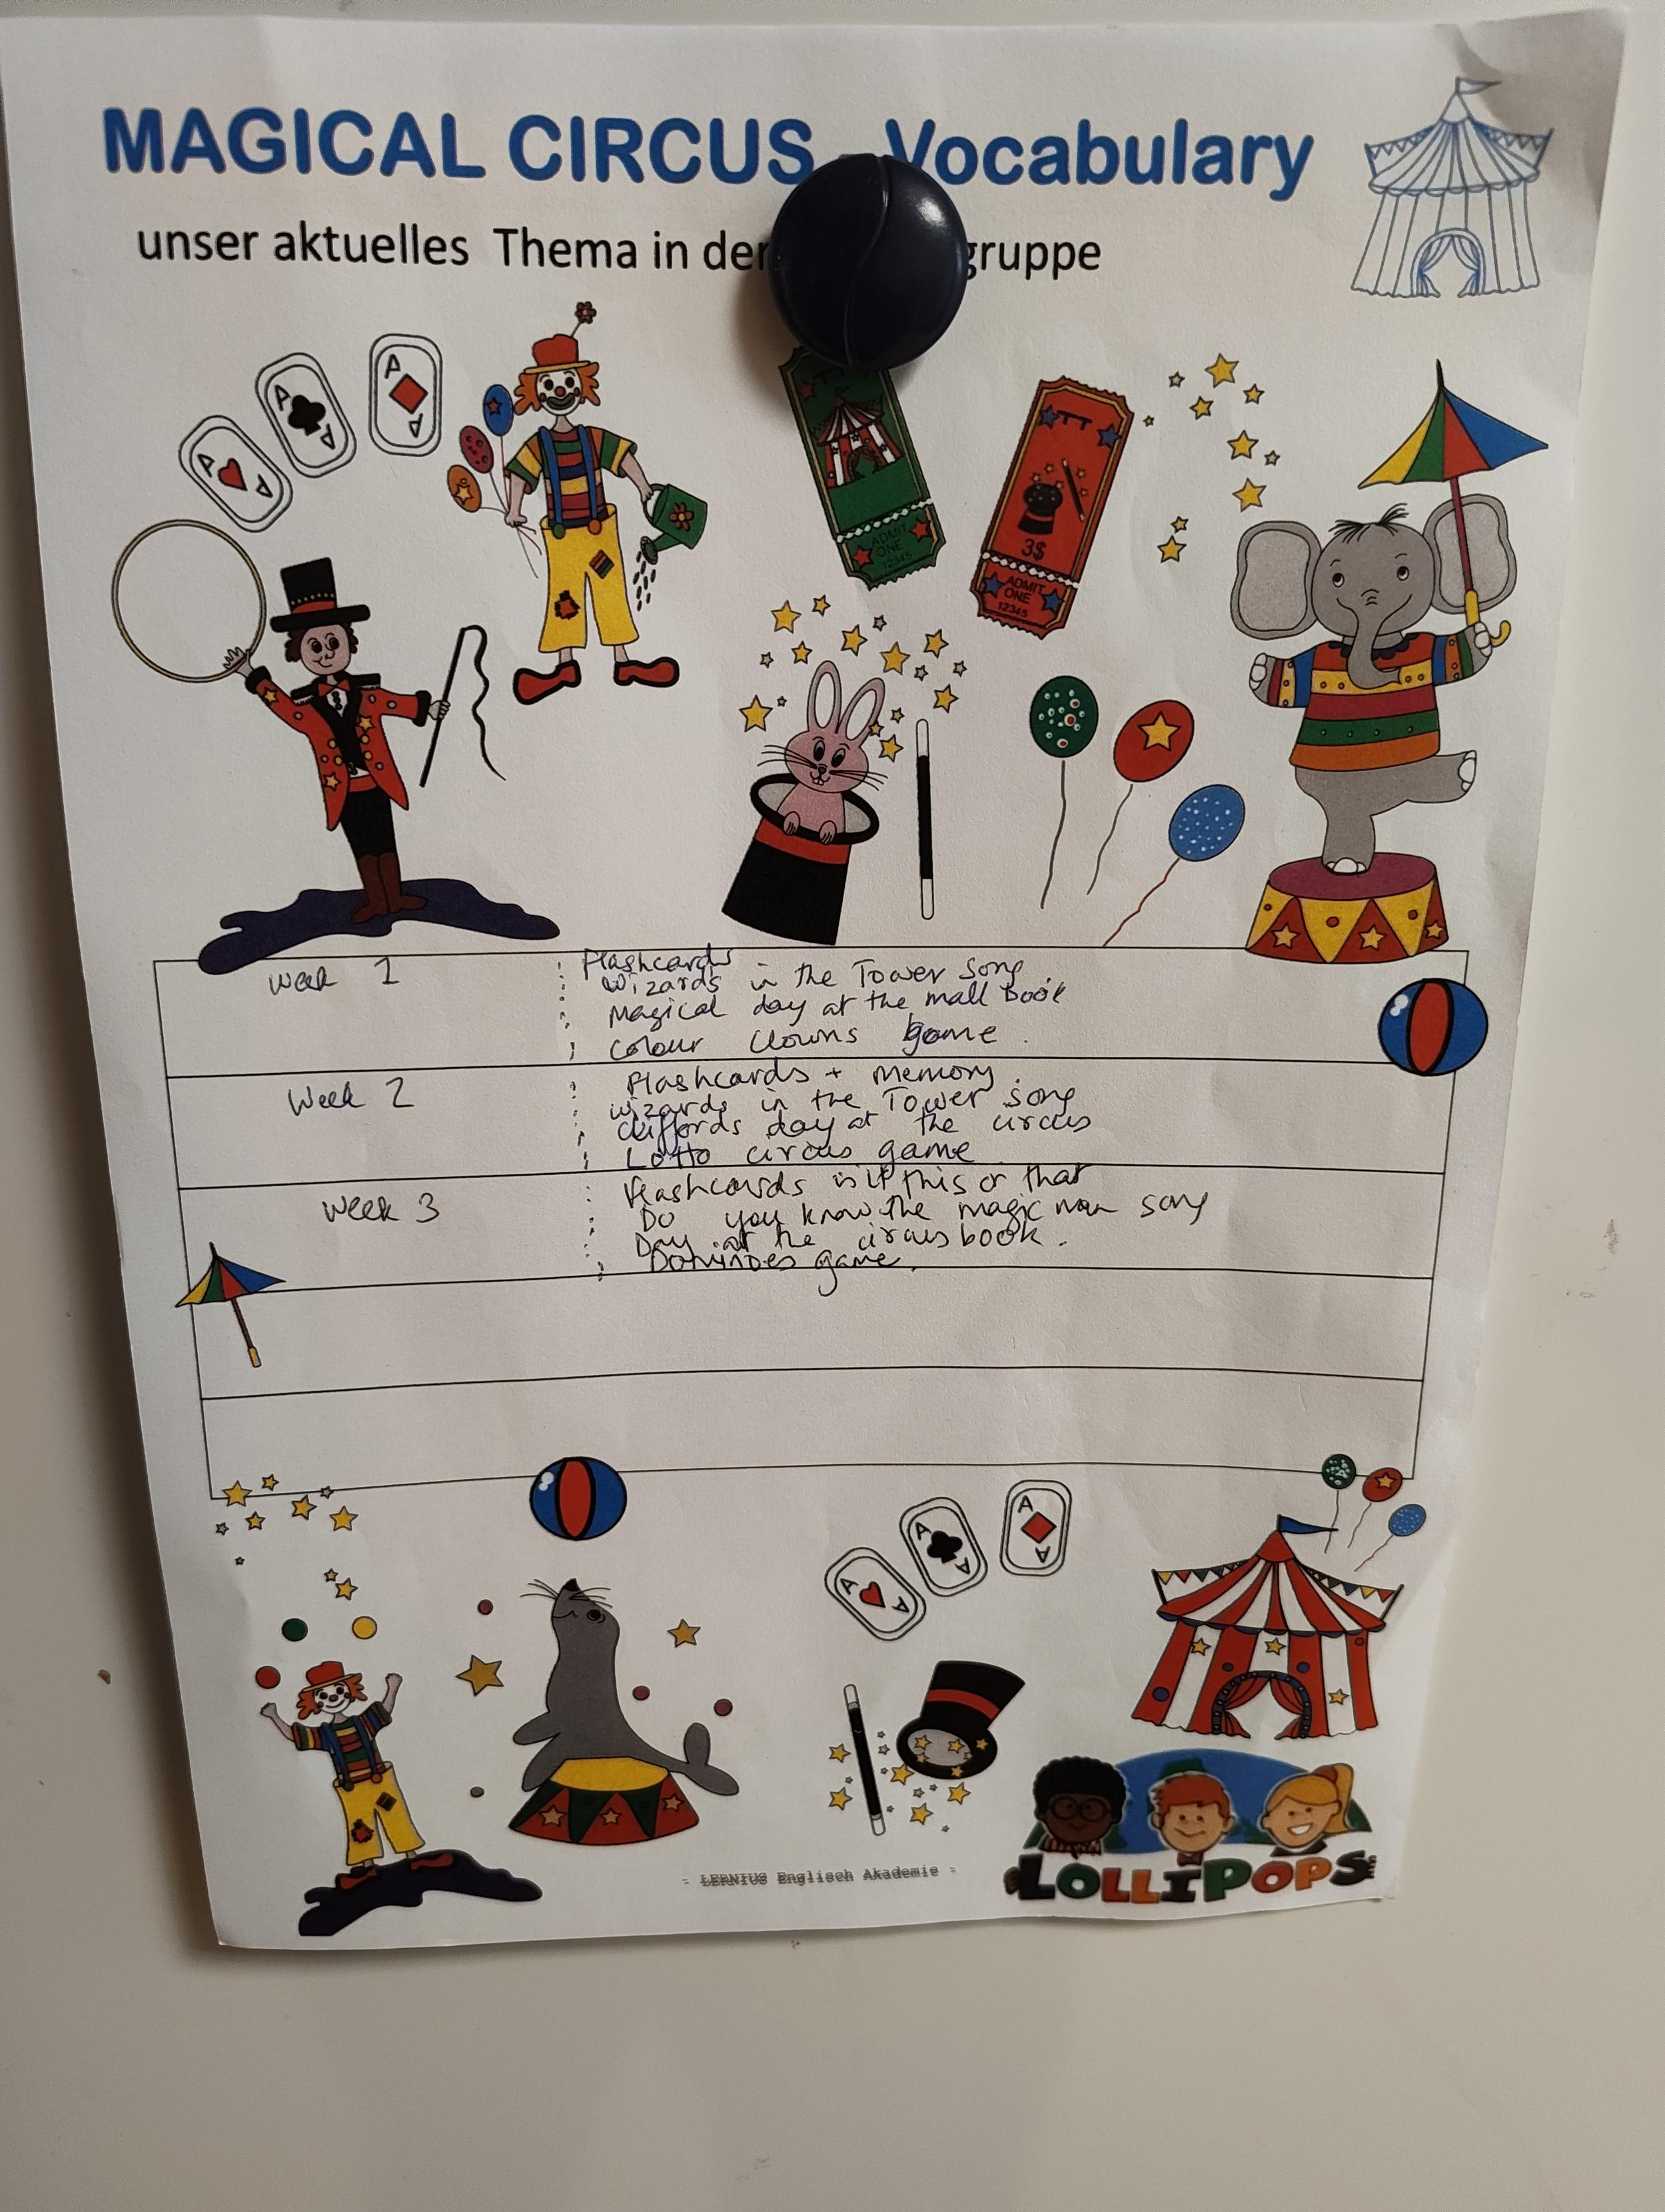 MAGICAL CIRCUS - Vocabulary
unser aktuelles Thema in der gruppe
A A
A A
A A
ADMIT
ONE
12345
3$
ADMIT
ONE
12345
Week 1
Flashcards
Wizards in the Tower song.
Magical day at the mall book
Colour Clowns game.
Week 2
Flashcards + memory.
Wizards in the Tower song
Cliffords day at the circus
Lotto circus game
Week 3
Flashcards is it this or that
Do you know the magic man song
Day at the circus book.
Dominoes game.
A A
A A
A A
- LERNIUS Englisch Akademie -
LOLLIPOPS